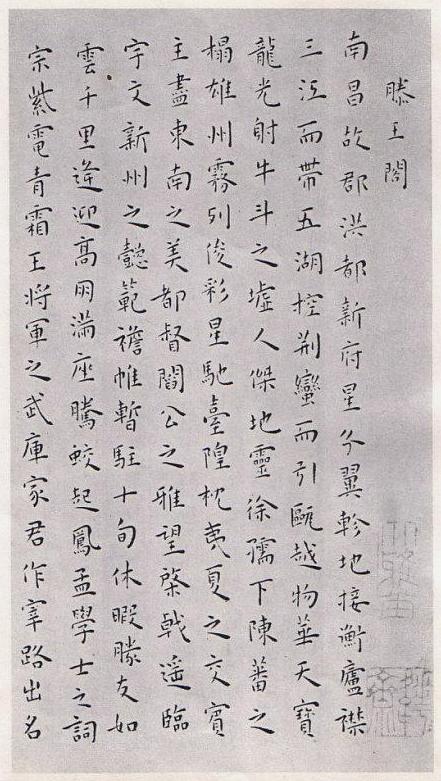 滕王閣
南昌故郡洪都新府星分翼軫地接衡廬襟
三江而帶五湖控荊蠻而引甌越物華天寶
龍光射牛斗之墟人傑地靈徐孺下陳蕃之
榻雄州霧列俊彩星馳臺隍枕夷夏之交賓
主盡東南之美都督閻公之雅望棨戟遥臨
宇文新州之懿範襜帷暫駐十旬休暇勝友如
雲千里逢迎高朋滿座騰蛟起鳳孟學士之詞
宗紫電青霜王將軍之武庫家君作宰路出名